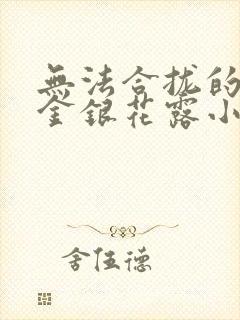 無法合拢的
金銀花露小
舍伍德